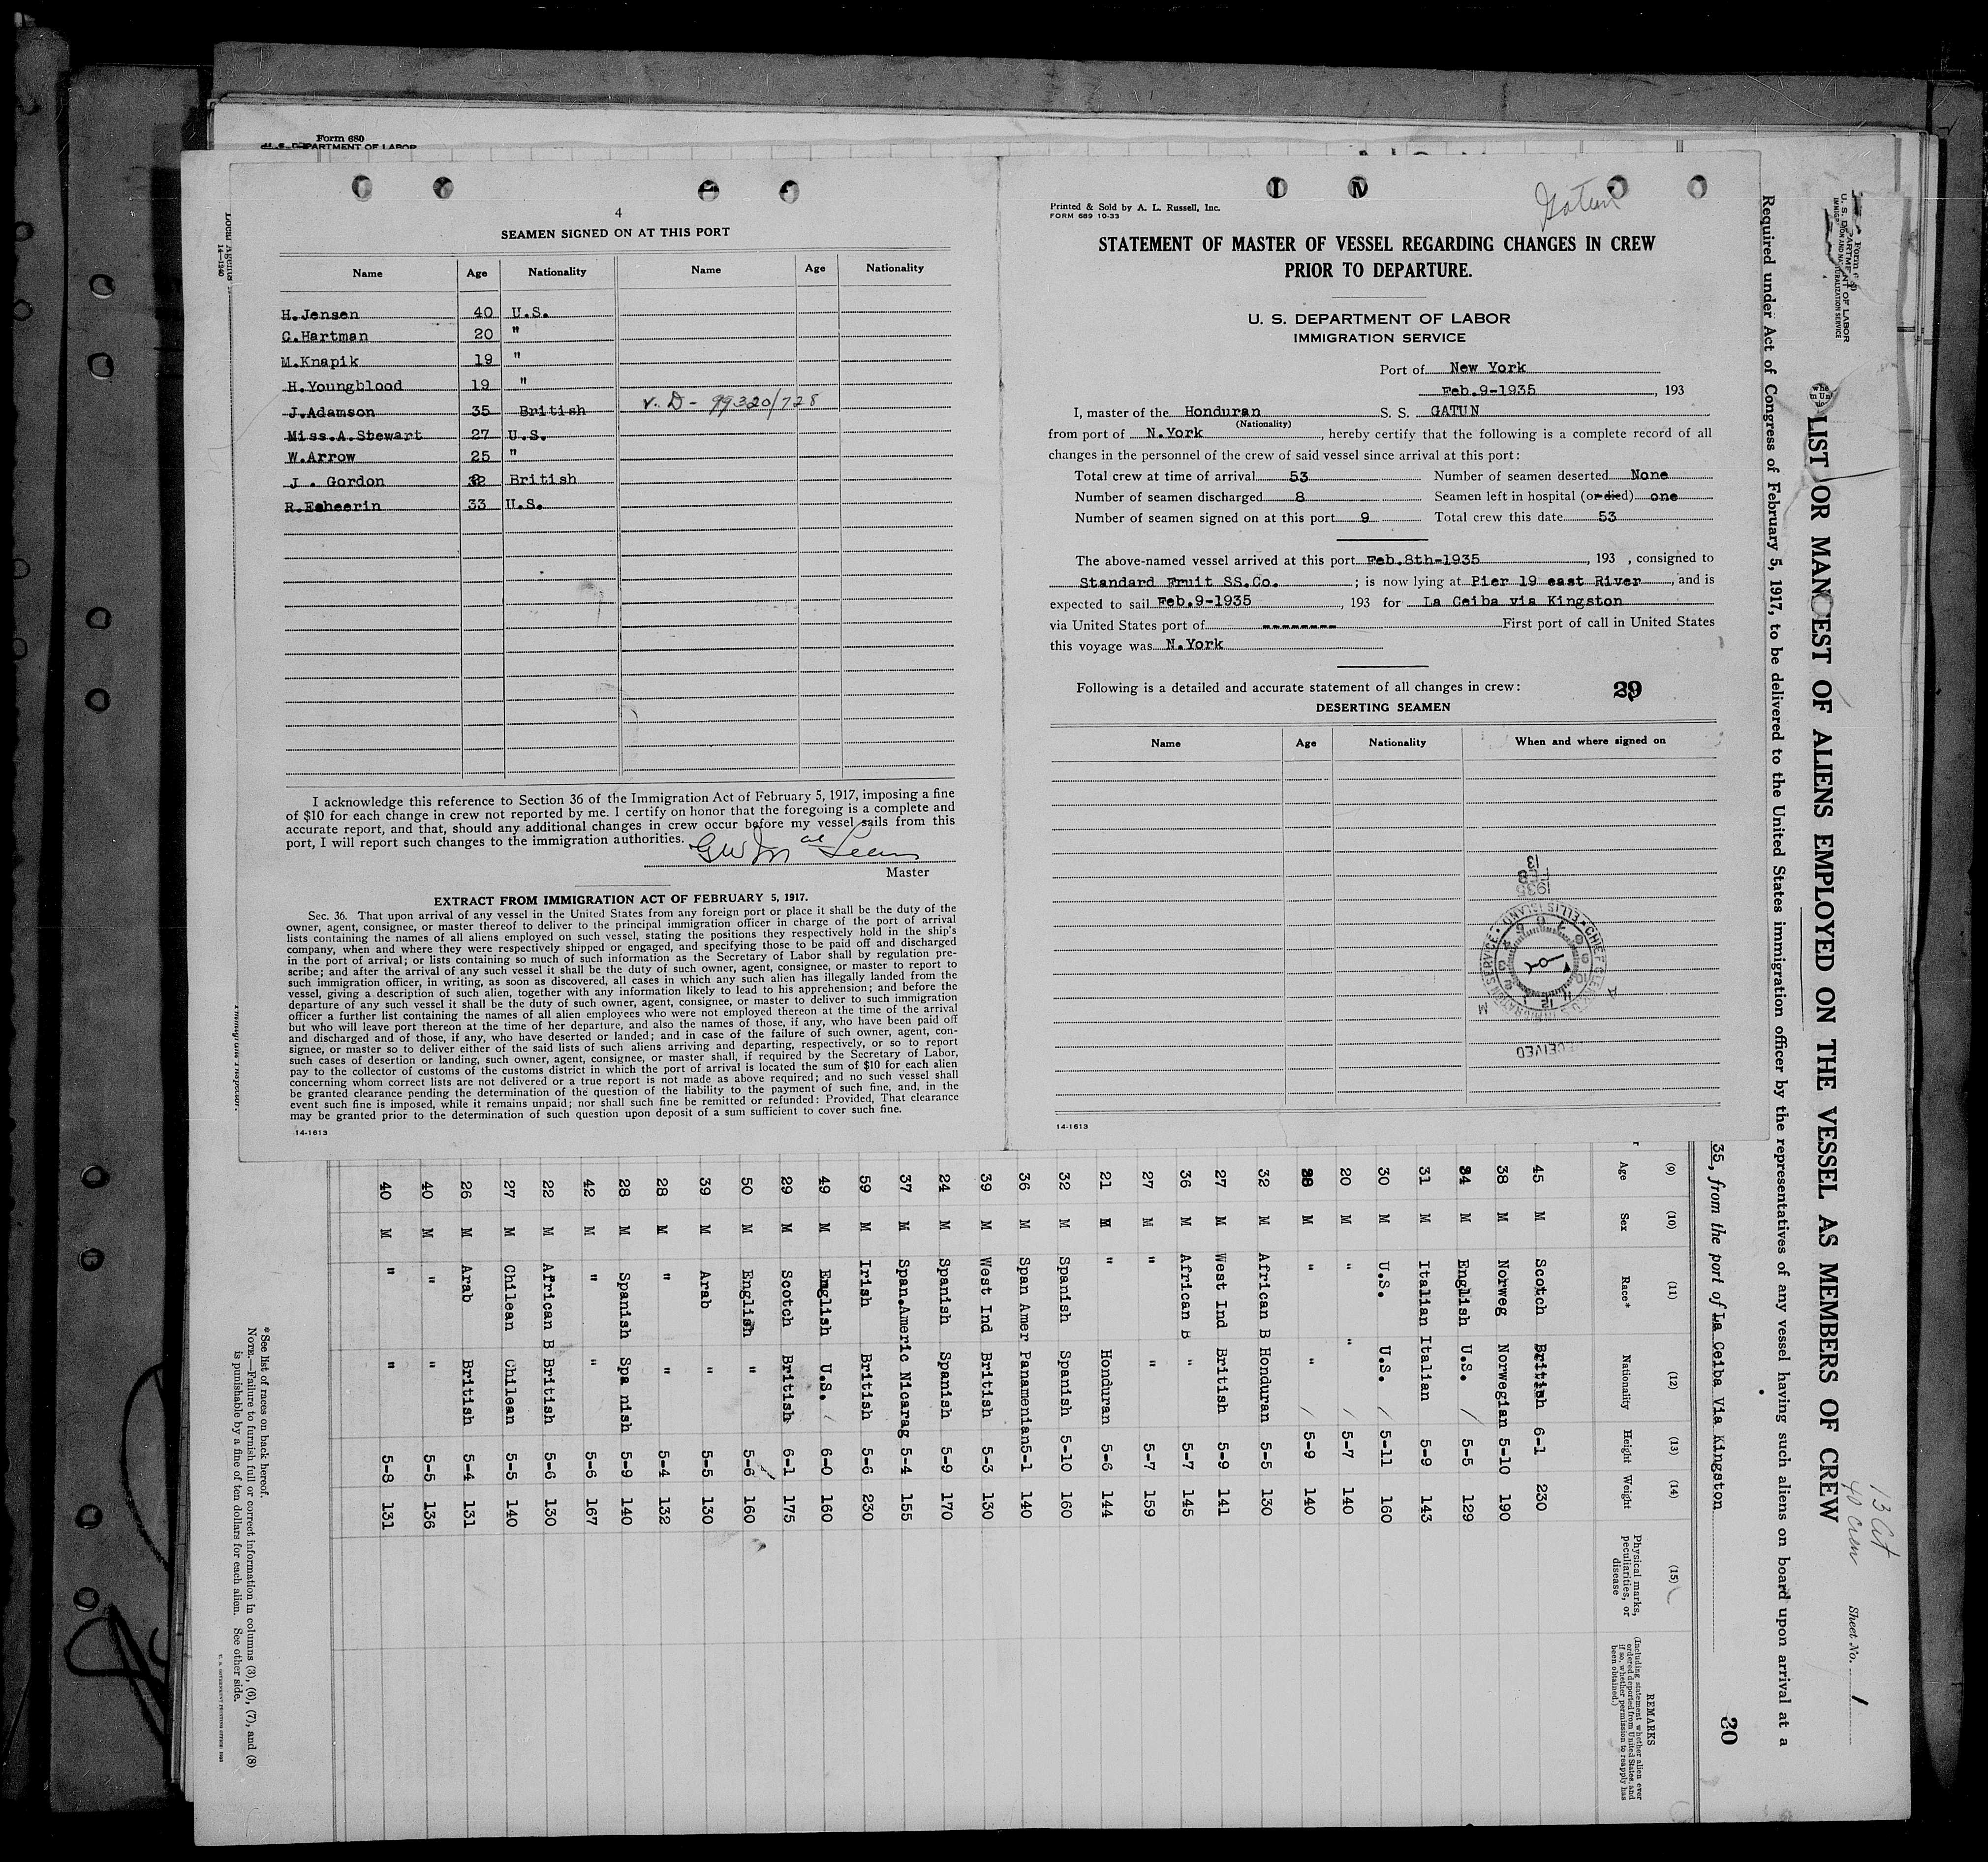 Form 680
U. S. DEPARTMENT OF LABOR
Local Agents
14—1240
4
SEAMEN SIGNED ON AT THIS PORT
Name Age Nationality Name Age Nationality
H.Jensen 40 U.S.
C.Hartman 20 "
M.Knapik 19 "
H.Youngblood 19 "
J.Adamson 35 British V. D - 99320/728
Miss.A.Stewart 27 U.S.
W.Arrow 25 "
J . Gordon 32 British
R.Esheerin 33 U.S.
I acknowledge this reference to Section 36 of the Immigration Act of February 5, 1917, imposing a fine
of $10 for each change in crew not reported by me. I certify on honor that the foregoing is a complete and
accurate report, and that, should any additional changes in crew occur before my vessel sails from this
port, I will report such changes to the immigration authorities.
Master
EXTRACT FROM IMMIGRATION ACT OF FEBRUARY 5, 1917.
Sec. 36. That upon arrival of any vessel in the United States from any foreign port or place it shall be the duty of the
owner, agent, consignee, or master thereof to deliver to the principal immigration officer in charge of the port of arrival
lists containing the names of all aliens employed on such vessel, stating the positions they respectively hold in the ship's
company, when and where they were respectively shipped or engaged, and specifying those to be paid off and discharged
in the port of arrival; or lists containing so much of such information as the Secretary of Labor shall by regulation pre-
scribe; and after the arrival of any such vessel it shall be the duty of such owner, agent, consignee, or master to report to
such immigration officer, in writing, as soon as discovered, all cases in which any such alien has illegally landed from the
vessel, giving a description of such alien, together with any information likely to lead to his apprehension; and before the
departure of any such vessel it shall be the duty of such owner, agent, consignee, or master to deliver to such immigration
officer a further list containing the names of all alien employees who were not employed thereon at the time of the arrival
but who will leave port thereon at the time of her departure, and also the names of those, if any, who have been paid off
and discharged and of those, if any, who have deserted or landed; and in case of the failure of such owner, agent, con-
signee, or master so to deliver either of the said lists of such aliens arriving and departing, respectively, or so to report
such cases of desertion or landing, such owner, agent, consignee, or master shall, if required by the Secretary of Labor,
pay to the collector of customs of the customs district in which the port of arrival is located the sum of $10 for each alien
concerning whom correct lists are not delivered or a true report is not made as above required; and no such vessel shall
be granted clearance pending the determination of the question of the liability to the payment of such fine, and, in the
event such fine is imposed, while it remains unpaid; nor shall such fine be remitted or refunded: Provided, That clearance
may be granted prior to the determination of such question upon deposit of a sum sufficient to cover such fine.
14-1613
Immigrant Inspector.
I M
Gatun
Printed & Sold by A. L. Russell, Inc.
FORM 689 10-33
STATEMENT OF MASTER OF VESSEL REGARDING CHANGES IN CREW
PRIOR TO DEPARTURE.
U. S. DEPARTMENT OF LABOR
IMMIGRATION SERVICE
Port of New York
Feb.9-1935 , 193
I, master of the Honduran S. S. GATUN
(Nationality)
from port of N.York , hereby certify that the following is a complete record of all
changes in the personnel of the crew of said vessel since arrival at this port:
Total crew at time of arrival 53 Number of seamen deserted None
Number of seamen discharged 8 Seamen left in hospital (or died) one
Number of seamen signed on at this port 9 Total crew this date 53
The above-named vessel arrived at this port Feb.8th-1935 , 193 , consigned to
Standard Fruit SS.Co. ; is now lying at Pier 19 east River , and is
expected to sail Feb.9-1935 , 193 for La Ceiba via Kingston
via United States port of -------- First port of call in United States
this voyage was N.York
Following is a detailed and accurate statement of all changes in crew: 29
DESERTING SEAMEN
Name Age Nationality When and where signed on
13
FEB
1935
CHIEF ELLIS ISLAND
IMMIGRATION SERVICE
RECEIVED
14-1613
Form 680
U. S. DEPARTMENT OF LABOR
IMMIGRATION AND NATURALIZATION SERVICE
13 Cit
40 Crew
Sheet No. 1
LIST OR MANIFEST OF ALIENS EMPLOYED ON THE VESSEL AS MEMBERS OF CREW
Required under Act of Congress of February 5, 1917, to be delivered to the United States immigration officer by the representatives of any vessel having such aliens on board upon arrival at a
30
35, from the port of La Ceiba Via Kingston
(9) (10) (11) (12) (13) (14) (15)
Age Sex Race* Nationality Height Weight Physical marks, peculiarities, or disease
REMARKS
(Including statement whether alien ever ordered deported from United States, and if so, whether permission to reapply has been obtained.)
45 M Scotch British 6-1 230
38 M Norweg Norwegian 5-10 190
34 M English U.S. 5-5 129
31 M Italian Italian 5-9 143
30 M U.S. U.S. 5-11 160
20 M " " 5-7 140
28 M " " 5-9 140
32 M African B Honduran 5-5 130
27 M West Ind British 5-9 141
36 M African B " 5-7 145
27 M " " 5-7 159
21 M " Honduran 5-6 144
32 M Spanish Spanish 5-10 160
36 M Span Amer Panamenian 5-1 140
39 M West Ind British 5-3 130
24 M Spanish Spanish 5-9 170
37 M Span.Americ Nicarag 5-4 155
59 M Irish British 5-6 230
49 M English U.S. 6-0 160
29 M Scotch British 6-1 175
50 M English " 5-6 160
39 M Arab " 5-5 130
28 M " " 5-4 132
28 M Spanish Spa nish 5-9 140
42 M " " 5-6 167
22 M African B British 5-6 130
27 M Chilean Chilean 5-5 140
26 M Arab British 5-4 131
40 M " " 5-5 136
40 M " " 5-8 131
* See list of races on back hereof.
NOTE.—Failure to furnish full or correct information in columns (3), (6), (7), and (8)
is punishable by a fine of ten dollars for each alien. See other side.